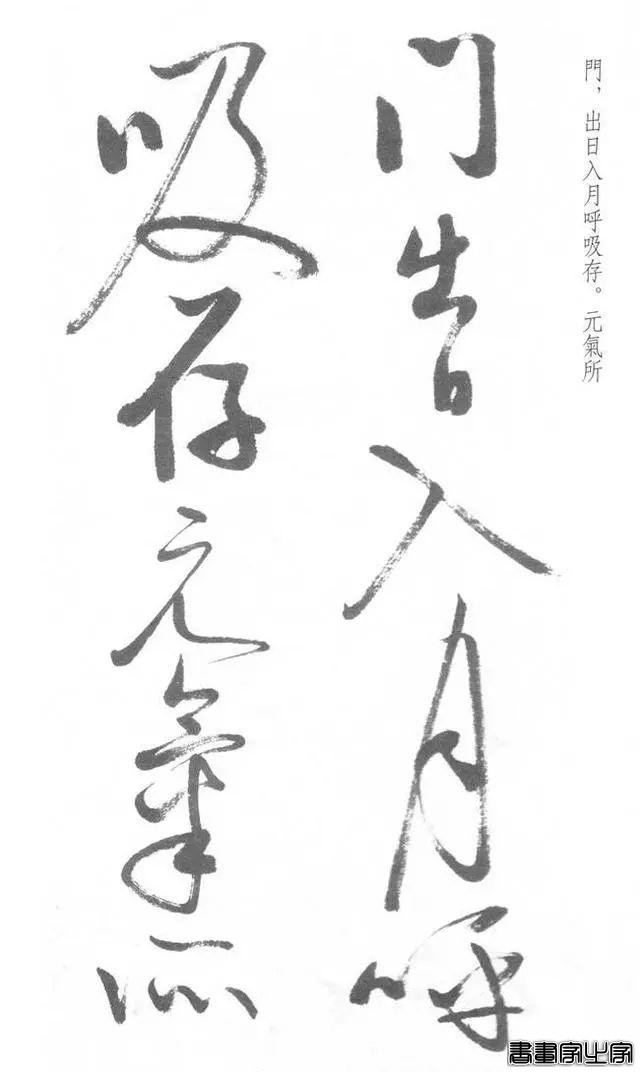 門，出日入月呼吸存。元氣所
门出日入月呼
吸存元氣所
書畫家之家